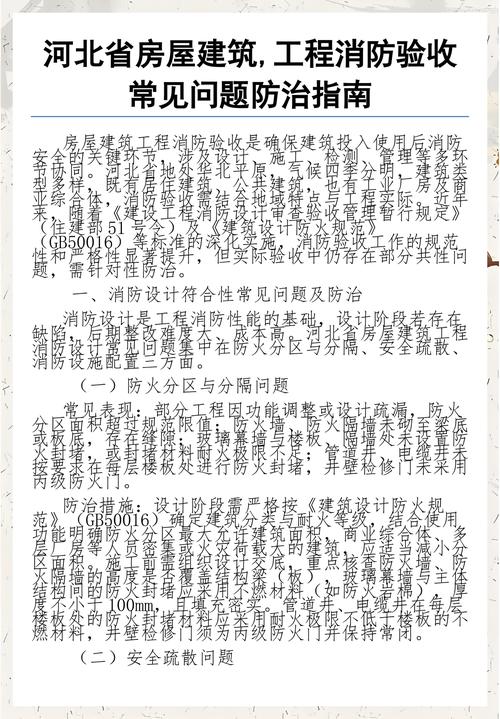 河北省房屋建筑,工程消防验收
常见问题防治指南
房屋建筑工程消防验收是确保建筑投入使用后消防
安全的关键环节，涉及设计、施工、检测、管理等多环
节协同。河北省地处华北平原，气候四季分明，建筑类
型多样，既有居住建筑、公共建筑，也有工业厂房及商
业综合体，消防验收需结合地域特点与工程实际。近年
来，随着《建设工程消防设计审查验收管理暂行规定》
（住建部51号令）及《建筑设计防火规范》
（GB50016）等标准的深化实施，消防验收工作的规范
性和严格性显著提升，但实际验收中仍存在部分共性问
题，需针对性防治。
一、消防设计符合性常见问题及防治
消防设计是工程消防性能的基础，设计阶段若存在
缺陷，后期整改难度大、成本高。河北省房屋建筑工程
消防设计常见问题集中在防火分区与分隔、安全疏散、
消防设施配置三方面。
（一）防火分区与分隔问题
常见表现：部分工程因功能调整或设计疏漏，防火
分区面积超过规范限值；防火墙、防火隔墙未砌至梁底
或板底，存在缝隙；玻璃幕墙与楼板、隔墙处未设置防
火封堵，或封堵材料耐火极限不足；管道井、电缆井未
按要求在每层楼板处进行防火封堵，井壁检修门未采用
丙级防火门。
防治措施：设计阶段需严格按《建筑设计防火规
范》（GB50016）确定建筑分类与耐火等级，结合使用
功能明确防火分区最大允许建筑面积，商业综合体、多
层厂房等人员密集或火灾荷载大的建筑，应适当减小分
区面积。施工前需组织设计交底，重点核查防火墙、防
火隔墙的高度是否覆盖结构梁（板），玻璃幕墙与主体
结构间的防火封堵应采用不燃材料（如防火岩棉），厚
度不小于100mm，且填充密实。管道井、电缆井在每层
楼板处的防火封堵材料应采用耐火极限不低于楼板的不
燃材料，井壁检修门须为丙级防火门并保持常闭。
（二）安全疏散问题